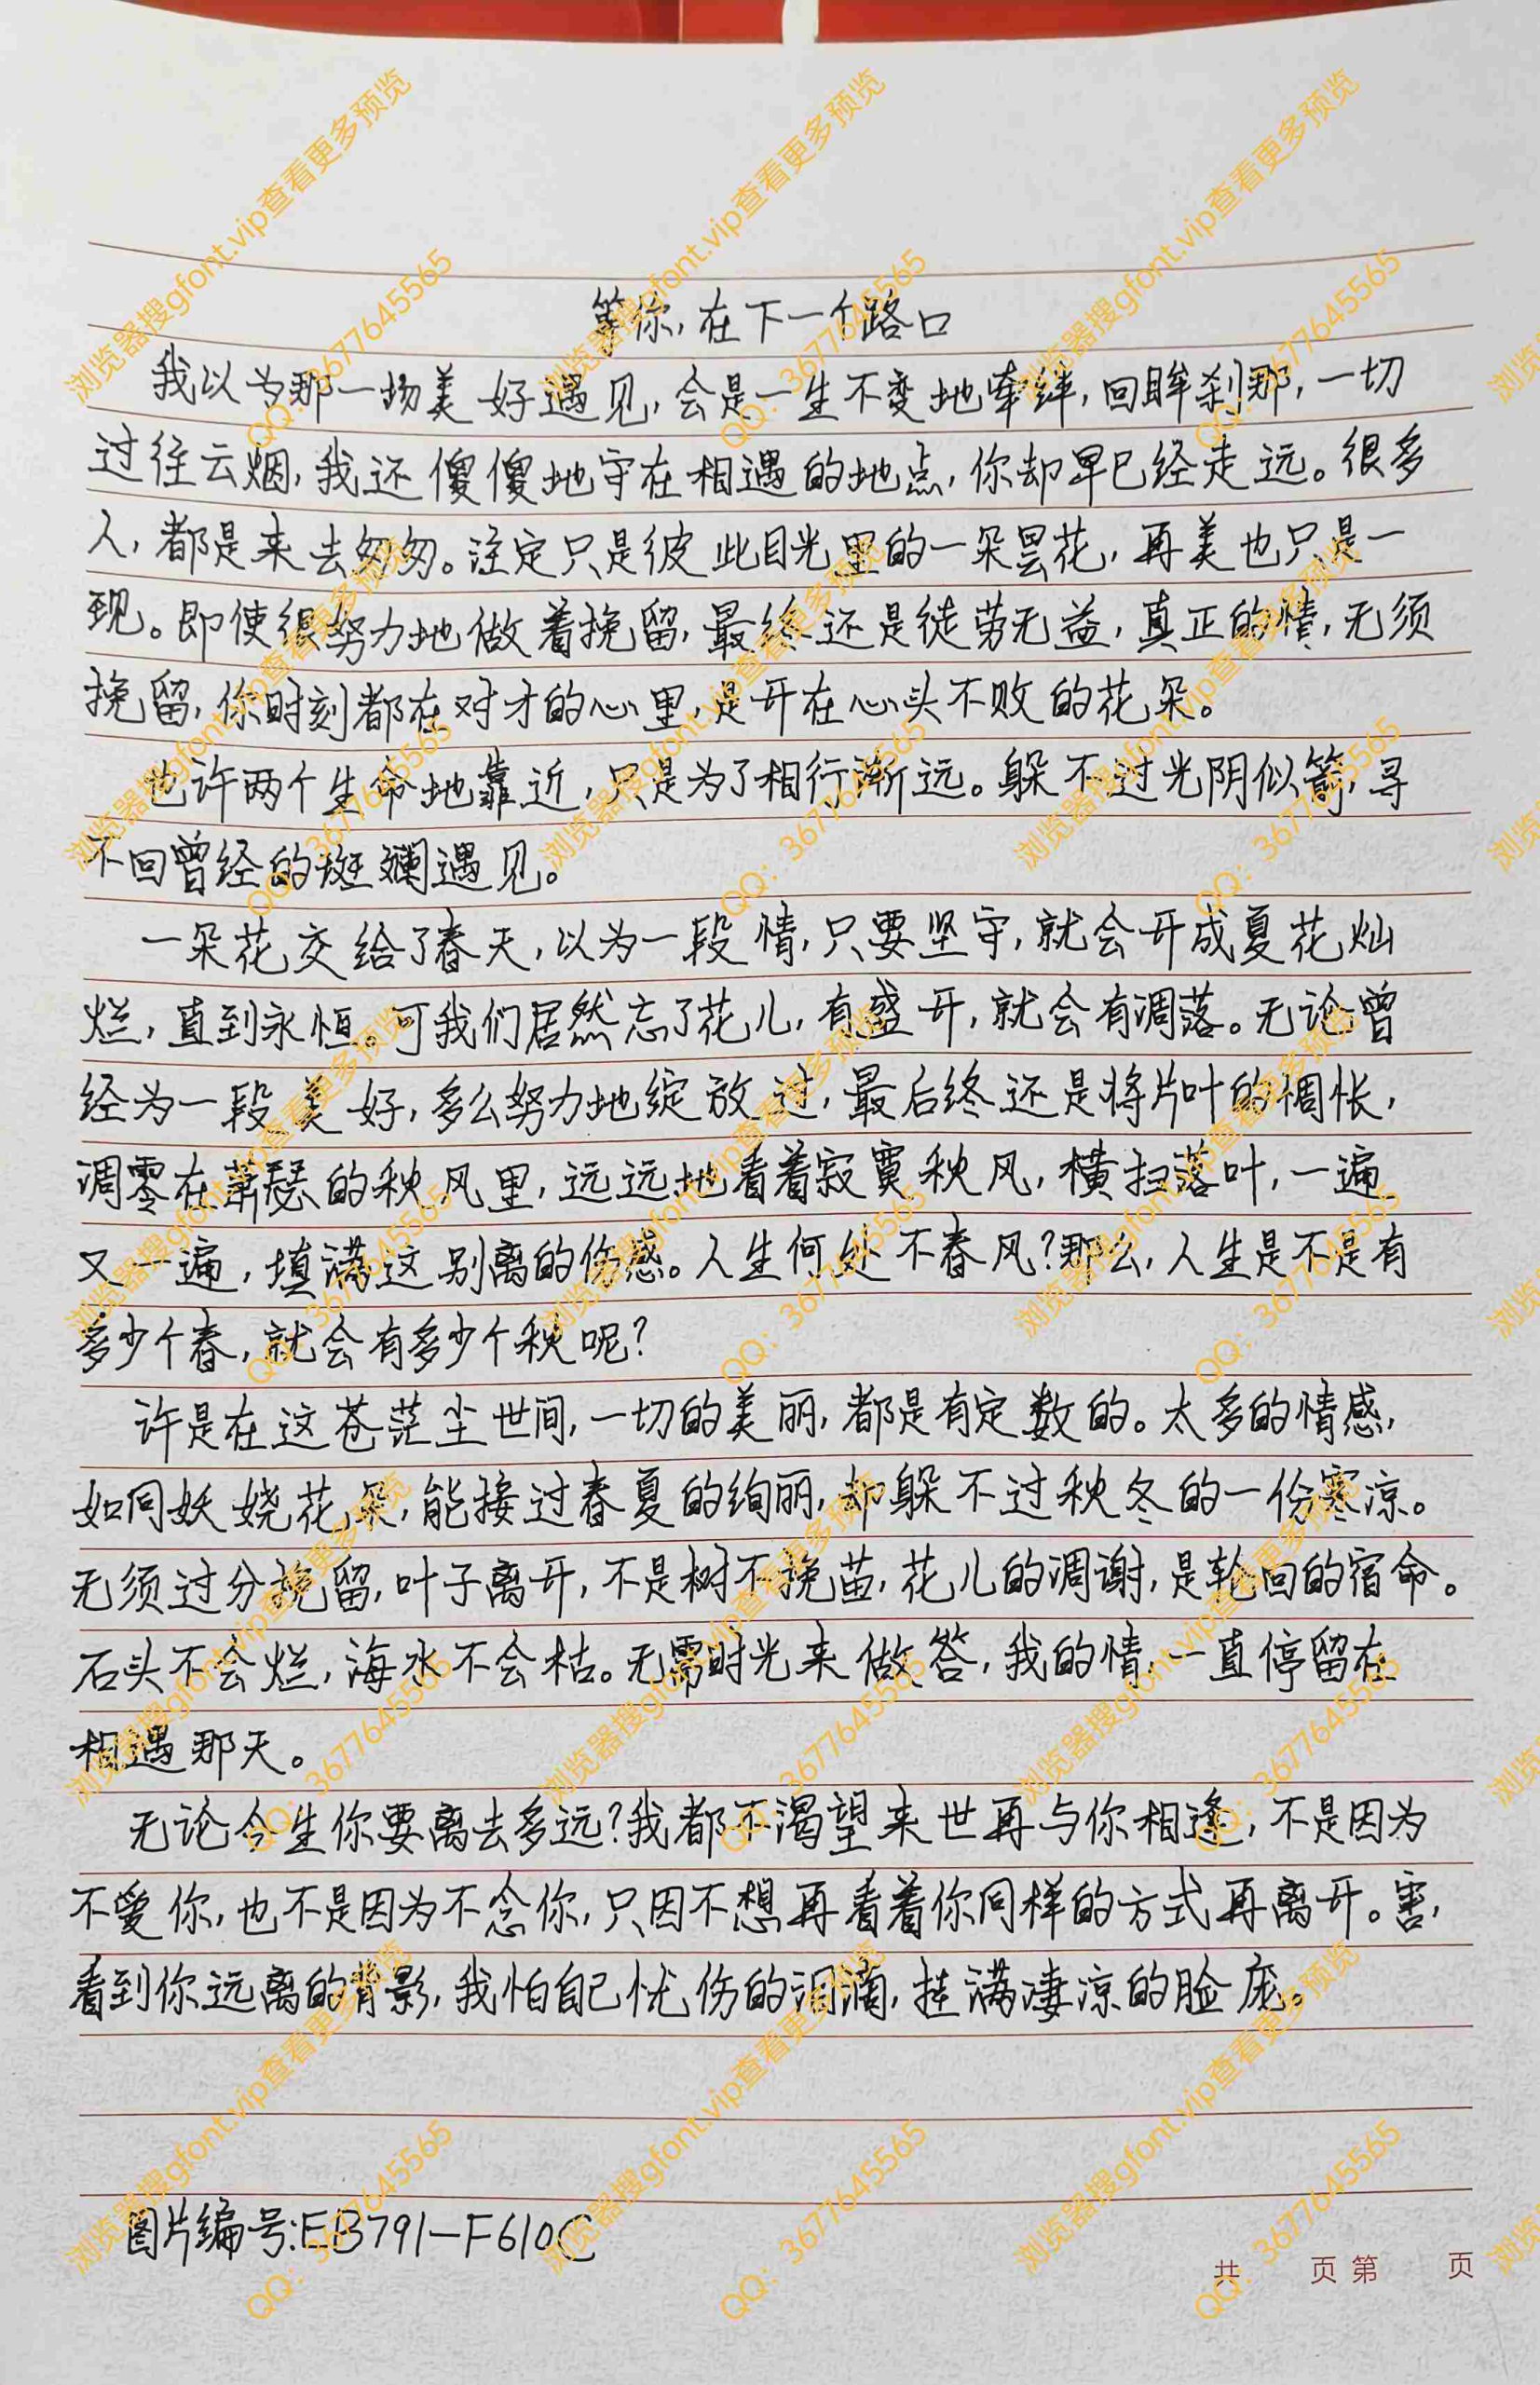 等你,在下一个路口
我以为那一场美好遇见,会是一生不变地牵绊,回眸刹那,一切
过往云烟,我还傻傻地守在相遇的地点,你却早已经走远。很多
人,都是来去匆匆。注定只是彼此目光里的一朵昙花,再美也只是一
现。即使很努力地做着挽留,最终还是徒劳无益,真正的情,无须
挽留,你时刻都在对才的心里,是开在心头不败的花朵。
也许两个生命地靠近,只是为了相行渐远。躲不过光阴似箭,寻
不回曾经的斑斓遇见。
一朵花交给了春天,以为一段情,只要坚守,就会开成夏花灿
烂,直到永恒。可我们居然忘了花儿,有盛开,就会有凋落。无论曾
经为一段美好,多么努力地绽放过,最后终还是将片叶的惆怅,
凋零在萧瑟的秋风里,远远地看着寂寞秋风,横扫落叶,一遍
又一遍,填满这别离的伤感。人生何处不春风?那么,人生是不是有
多少个春,就会有多少个秋呢?
许是在这苍茫尘世间,一切的美丽,都是有定数的。太多的情感,
如同妖娆花朵,能接过春夏的绚丽,却躲不过秋冬的一份寒凉。
无须过分挽留,叶子离开,不是树不挽苗,花儿的凋谢,是轮回的宿命。
石头不会烂,海水不会枯。无需时光来做答,我的情,一直停留在
相遇那天。
无论今生你要离去多远?我都不渴望来世再与你相逢,不是因为
不爱你,也不是因为不念你,只因不想再看着你同样的方式再离开。害,
看到你远离的背影,我怕自己忧伤的泪滴,挂满凄凉的脸庞。
图片编号:EB791-F610C
共 页 第 页
浏览器搜gfont.vip查看更多预览
QQ:3677645565